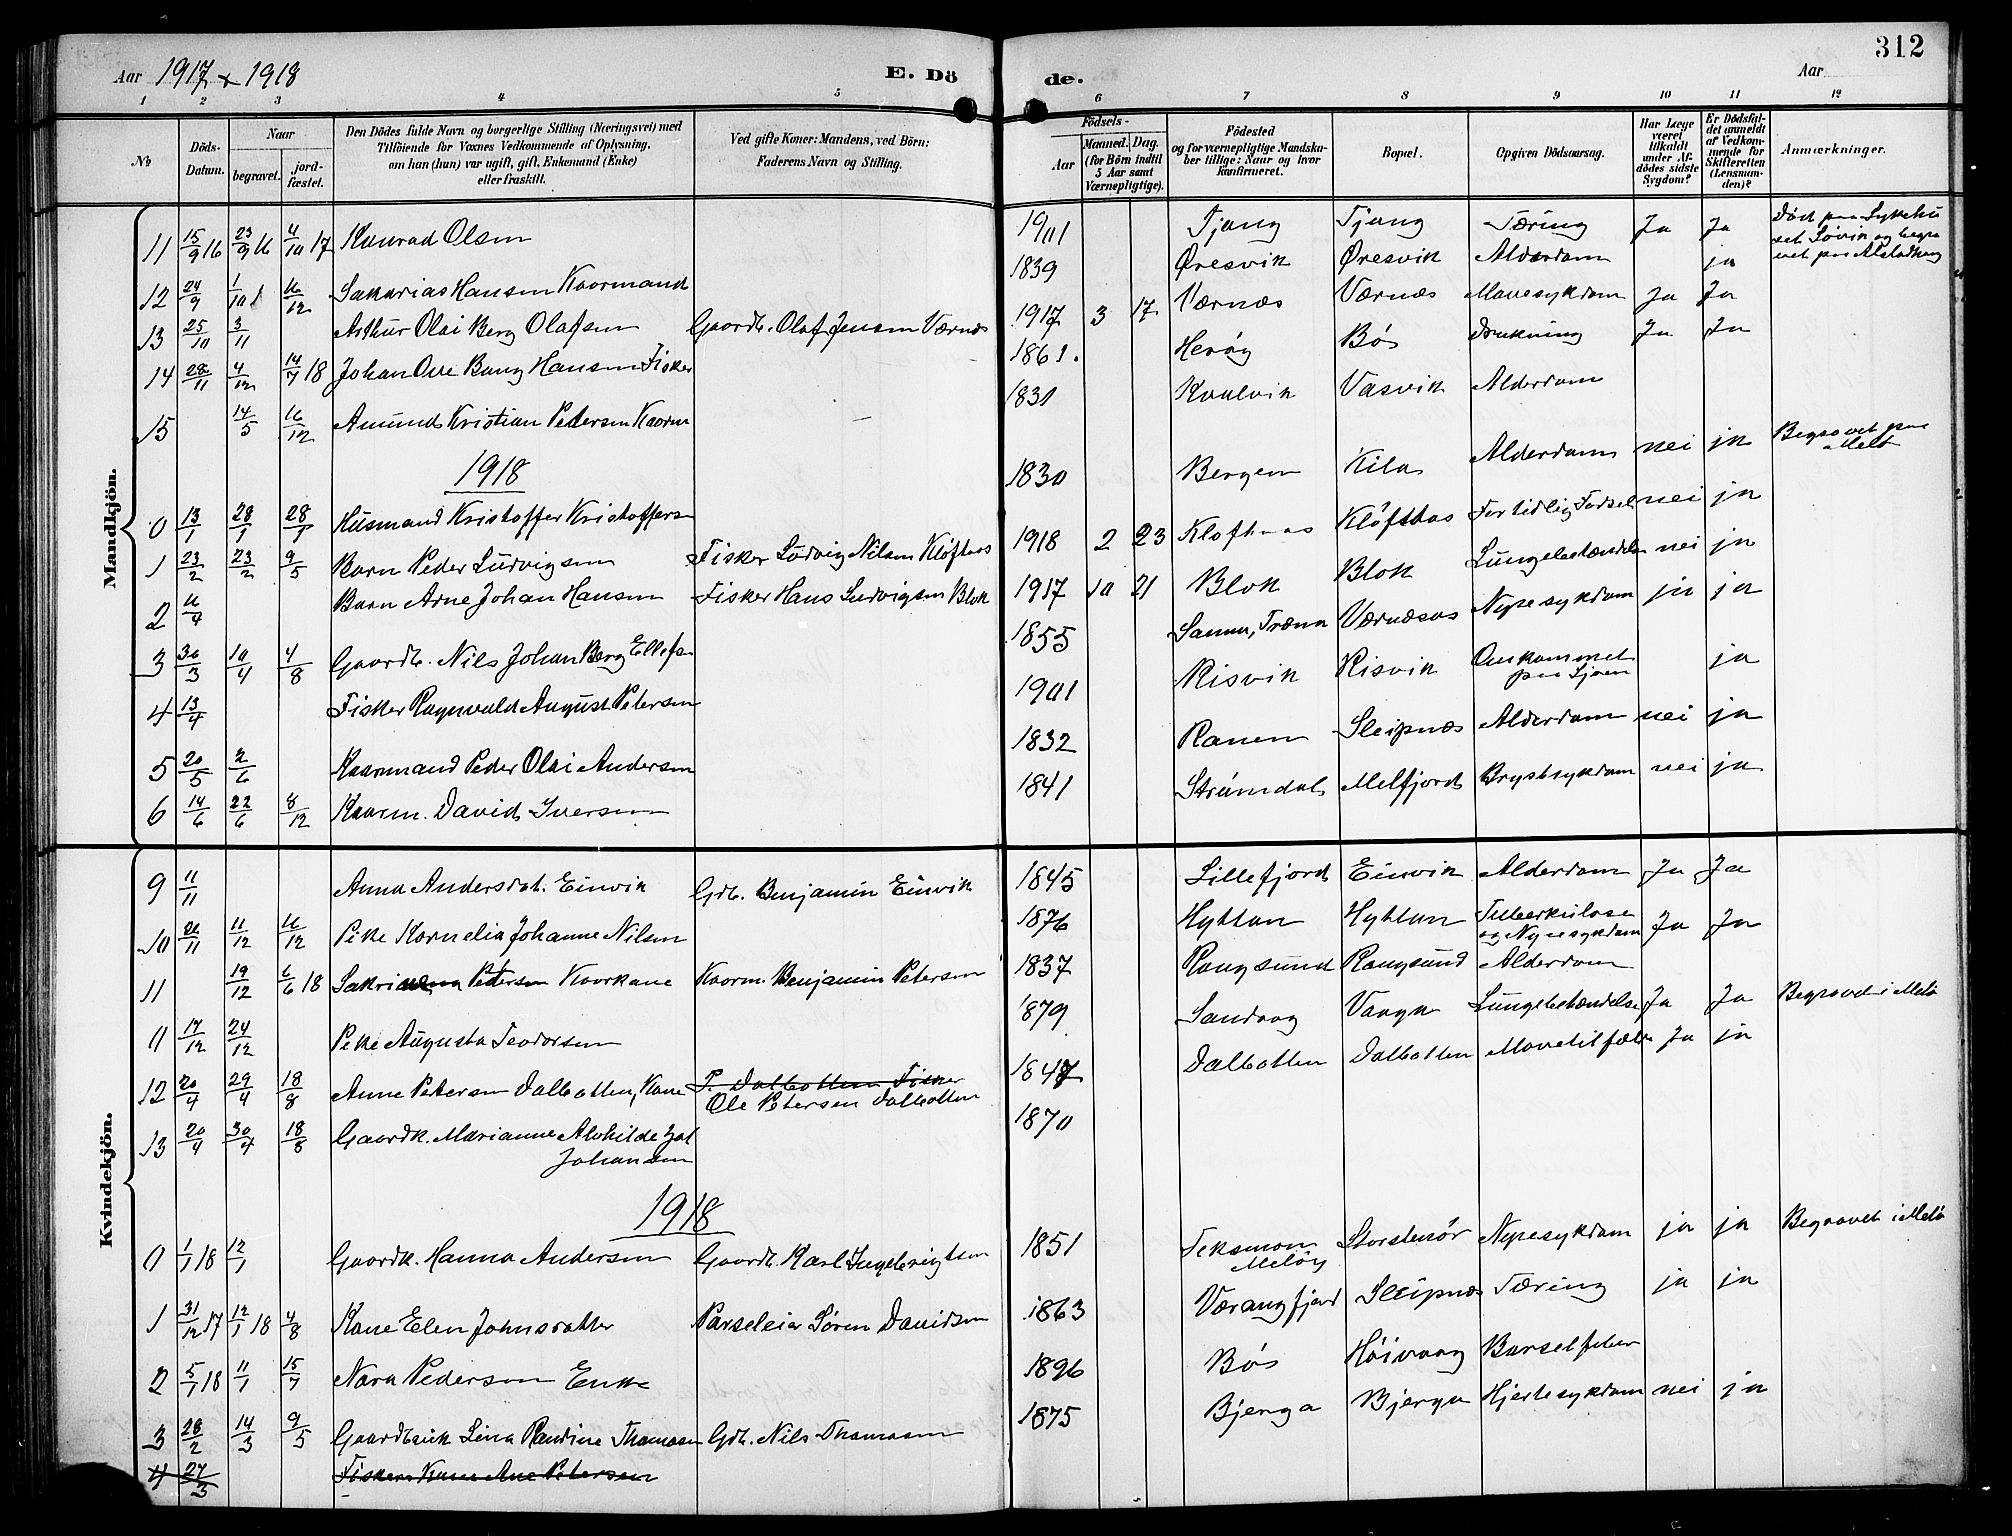 312
Aar 1917 + 1918
E. Dö
de.
Aar
1 2 3 4 5 6 7 8 9 10 11 12
No
Döds-Datum.
Naar
begravet.
jord-fæstet.
Den Dödes fulde Navn og borgerlige Stilling (Næringsvei) med
Tilföiende for Voxnes Vedkommende af Oplysning,
om han (hun) var ugift, gift, Enkemand (Enke)
eller fraskilt.
Ved gifte Koner: Mandens, ved Börn:
Faderens Navn og Stilling.
Födsels-
Aar
Maaned. Dag.
(for Börn indtil
5 Aar samt
Værnepligtige).
Födested
og for værnepligtige Mandska-
ber tillige: Naar og hvor
konfirmeret.
Bopæl.
Opgiven Dödsaarsag.
Har Læge
været
tilkaldt
under Af-
dödes sidste
Sygdom?
Er Dödsfal-
det anmeldt
af Vedkom-
mende for
Skifteretten
(Lensman-
den)?
Anmærkninger.
Mandkjön.
11 15/9 16 23/9 16 4/10 17 Konrad Olsen 1901 Tjong Tjong Tæring Ja Ja Död paa Sykehu
set Sövik og begra
vet paa Alstadhaug
12 24/9 1/10 16/12 Sakarias Hansen Kaarmand 1839 Øresvik Øresvik Alderdom ja
13 25/10 3/11 Arthur Olai Berg Olafsen Gaardb. Olaf Jensen Værnes 1917 3 17 Værnæs Værnæs Mavesykdom Ja Ja
14 28/11 4/12 14/7 18 Johan Ove Bang Hansen Fisker 1861. Heröy Bös Drukning Ja Ja
15 14/5 16/12 Amund Kristian Petersen Kaarm 1831 Kvalvik Vasvik Alderdom
1918
0 13/1 28/1 28/1 Husmand Kristoffer Kristoffersen 1830 Bergen Kila Alderdom nei ja Begravet paa
Melö
1 23/2 23/2 9/5 Barn Peder Ludvigsen Fisker Ludvig Nilsen Klöftnes 1918 2 23 Klöftnes Klöftnes For tidlig Födsel nei ja
2 11/4 Barn Arne Johan Hansen Fisker Hans Ludvigsen Blok 1917 10 21 Blok Blok Lungebetændelse nei ja
3 30/3 10/4 4/8 Gaardb. Nils Johan Berg Ellefsen 1855 Sanna, Træna Værnæs Nyresykdom ja ja
4 13/4 Fisker Ragnvald August Petersen 1901 Risvik Risvik Omkommet
paa Sjöen ja
5 20/5 2/6 Kaarmand Peder Olai Andersen 1832 Ranen Sleipnæs Alderdom nei ja
6 14/6 22/6 8/12 Kaarm. David Iversen 1841 Strömdal Melfjord Brystsykdom nei ja
Kvindekjön.
9 11/11 Anna Andersdat. Einvik Gdb. Benjamin Einvik 1845 Lillefjord Einvik Alderdom Ja Ja
10 26/11 11/12 16/12 Pike Kornelia Johanne Nilsen 1876 Hyttan Hyttan Tuberkulose
og Nyresykdom Ja Ja
11 19/12 6/6 18 Sakrine Petersen Kaarkone Kaarm. Benjamin Petersen 1837 Rangsund Rangsund Alderdom
11 17/12 24/12 Pike Augusta Teodorsen 1879 Sandvag Vaagn Lungebetændelse Ja Ja Begravet i Melö
12 20/4 29/4 18/8 Anne Petersen Dalbotten, Kone P. Dalbotten Fisker
Ole Petersen Dalbotten 1847 Dalbotten Dalbotten Mavetilfælde Ja ja
13 20/4 30/4 18/8 Gaardk. Marianne Alvhilde
Johansen 1870
1918
0 1/1 18 12/1 Gaardk. Hanna Andersen Gaardb. Karl Ingebrigtsen 1851 Teksmon
Melöy Storstenör Nyresykdom ja ja Begravet i Melö
1 31/12 17 12/1 18 4/8 Kone Elen Johnsdatter Parseleier Sören Davidsen 1863 Værangfjord Sleipnæs Tæring ja ja
2 5/1 18 11/1 15/7 Nora Pedersen Enke 1896 Bös Höivaag Barselfeber
3 28/2 14/3 9/5 Gaardbruk Lina Paudine Thomasen Gdb. Nils Thomasen 1875 Bjerga Bjerga Hjertesykdom nei ja
4 27/3 Fiskers Kone Ane Petersen